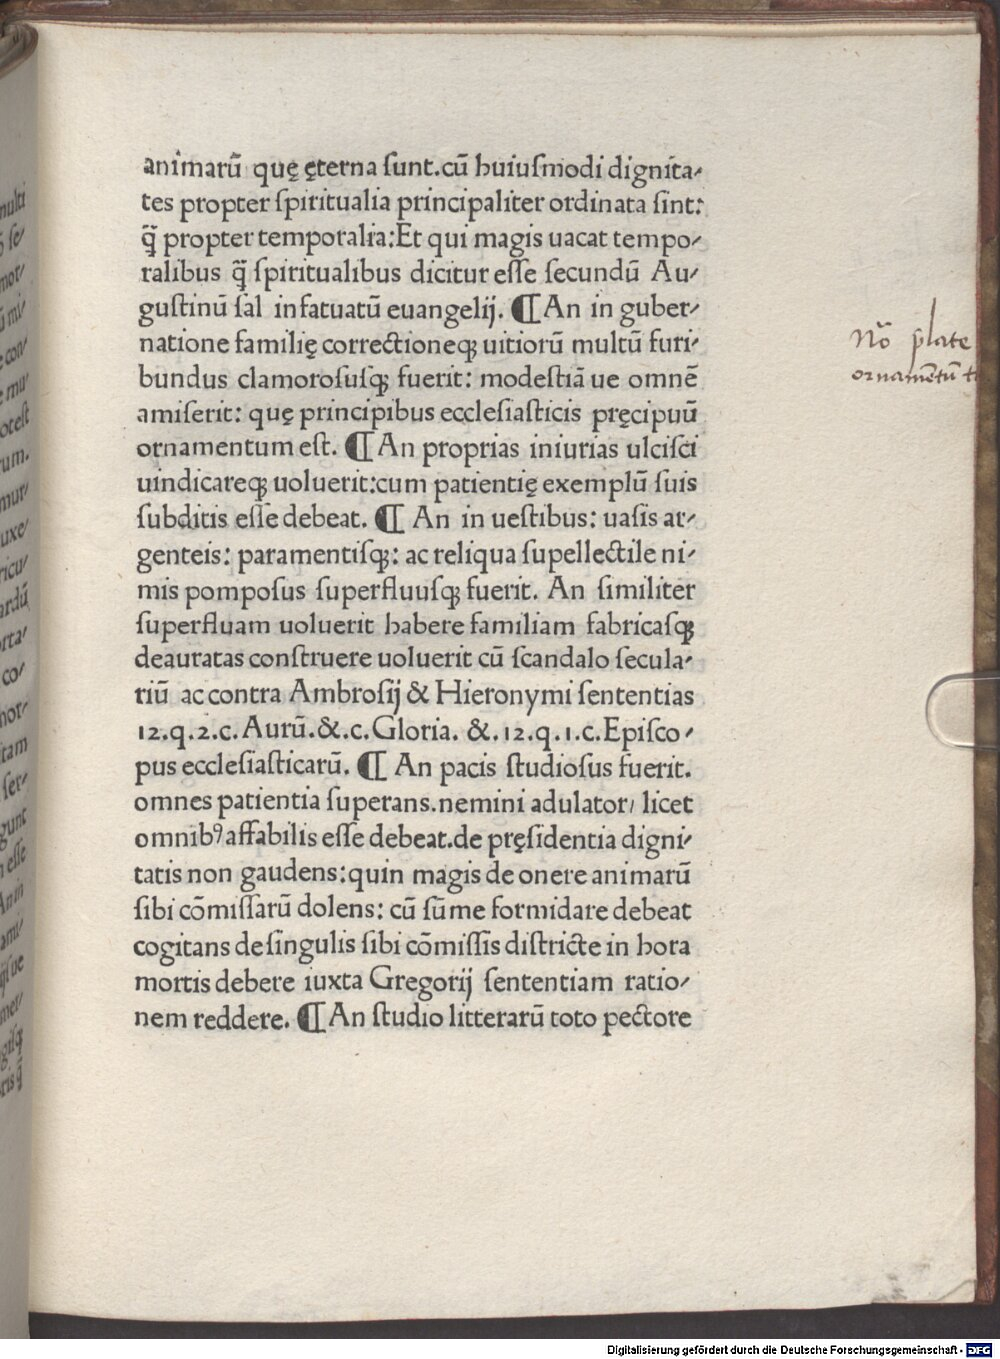 animarū quę ęterna sunt.cū huiusmodi dignita⸗
tes propter spiritualia principaliter ordinata sint:
q̄ propter temporalia:Et qui magis uacat tempo⸗
ralibus q̄ spiritualibus dicitur esse secundū Au⸗
gustinū sal infatuatū euangelij. ¶ An in guber⸗
natione familię correctioneqꝫ uitiorū multū furi⸗
bundus clamorosusqꝫ fuerit: modestiā ue omnē
amiserit: quę principibus ecclesiasticis pręcipuū
ornamentum est. ¶ An proprias iniurias ulcisci
uindicareqꝫ uoluerit:cum patientię exemplū suis
subditis esse debeat. ¶ An in uestibus: uasis ar⸗
genteis: paramentisqꝫ: ac reliqua supellectile ni⸗
mis pomposus superfluusqꝫ fuerit. An similiter
superfluam uoluerit habere familiam fabricasqꝫ
deauratas construere uoluerit cū scandalo secula⸗
riū ac contra Ambrosij & Hieronymi sententias
12.q.2.c.Aurū.&.c.Gloria. &.12.q.1.c.Episco⸗
pus ecclesiasticarū. ¶ An pacis studiosus fuerit.
omnes patientia superans.nemini adulator/ licet
omnibꝰ affabilis esse debeat.de pręsidentia digni⸗
tatis non gaudens:quin magis de onere animarū
sibi cōmissarū dolens: cū sūme formidare debeat
cogitans de singulis sibi cōmissis districte in hora
mortis debere iuxta Gregorij sententiam ratio⸗
nem reddere. ¶ An studio litterarū toto pectore
No᷑ p̄late
ornamētū
Digitalisierung gefördert durch die Deutsche Forschungsgemeinschaft - DFG